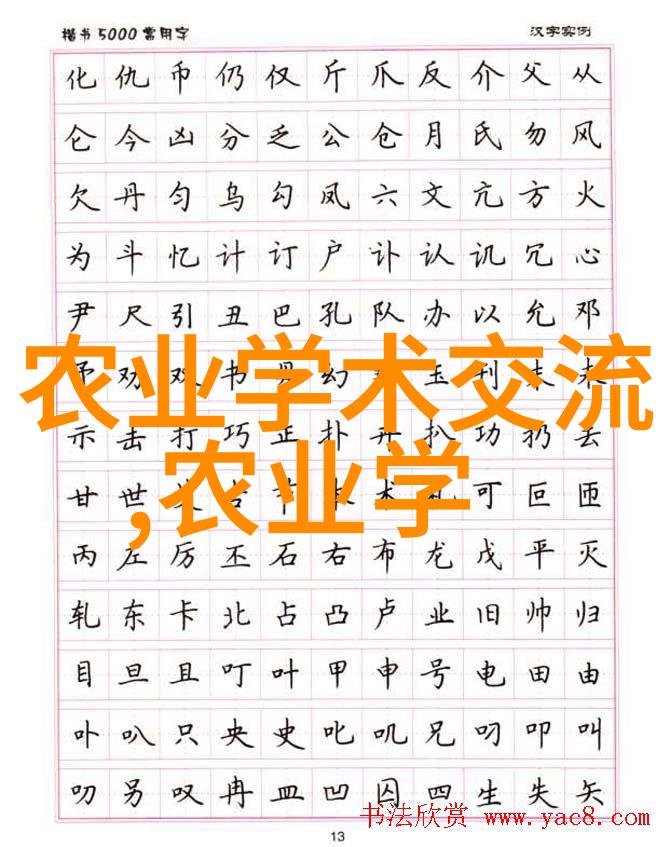 楷书5000常用字 汉字实例
化仇币仍仅斤爪反介父从
仑今凶分乏公仓月氏勿风
欠丹匀乌勾凤六文亢方火
为斗忆计订户讣认讥冗心
尹尺引丑巴孔队办以允邓
农业学术交流
示击打巧正扑 扒功扔去
,农业学
甘世 可叵匝
丙左厉丕石右布龙戊平灭
轧东卡北占凸卢业旧帅归
目旦且叮叶甲申号电田由
卟叭只央史叱叽兄叼叩叫
叨另叹冉皿凹囚四生失矢
书法欣赏 www.yac8.com
13